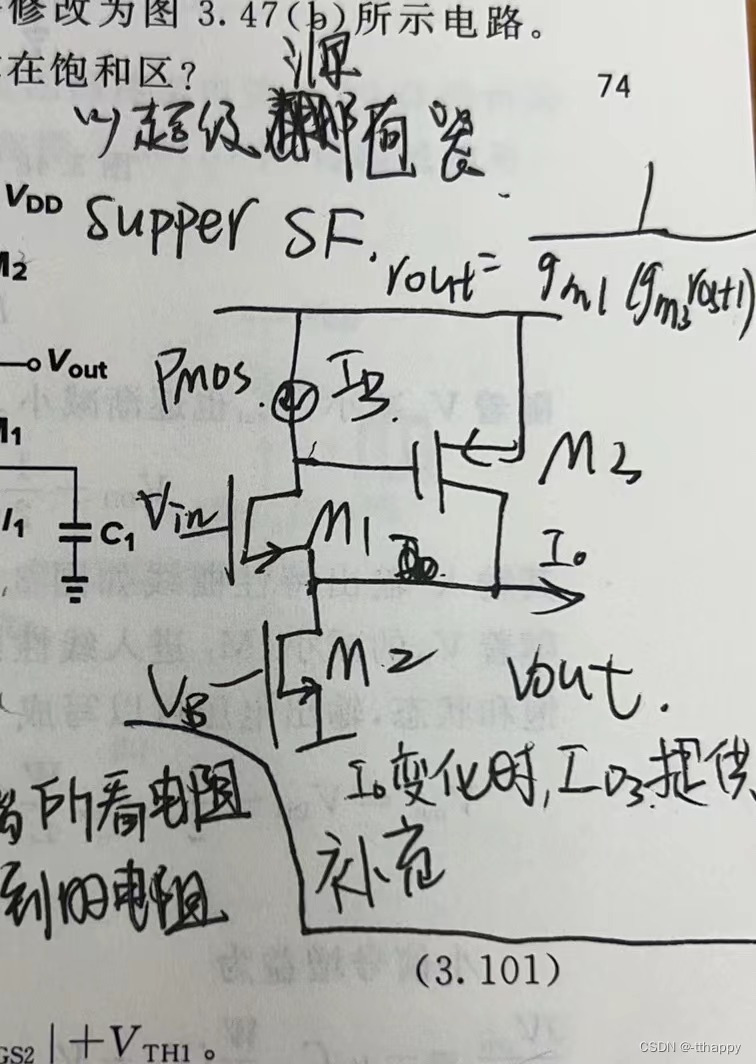 修改为图 3.47(b)所示电路。
在饱和区?
源
74
(1)超级 随器
VDD
supper SF.
rout = 1 / gm1 (gm3 ro3+1)
M2
Vout
Pmos.
IB.
M3
M1
I1
C1
Vin
M1
Io
M2
VB
Vout.
Io变化时, ID3.提供
所看电阻
补充
到的电阻
(3.101)
GS2|+VTH1。
CSDN @-tthappy